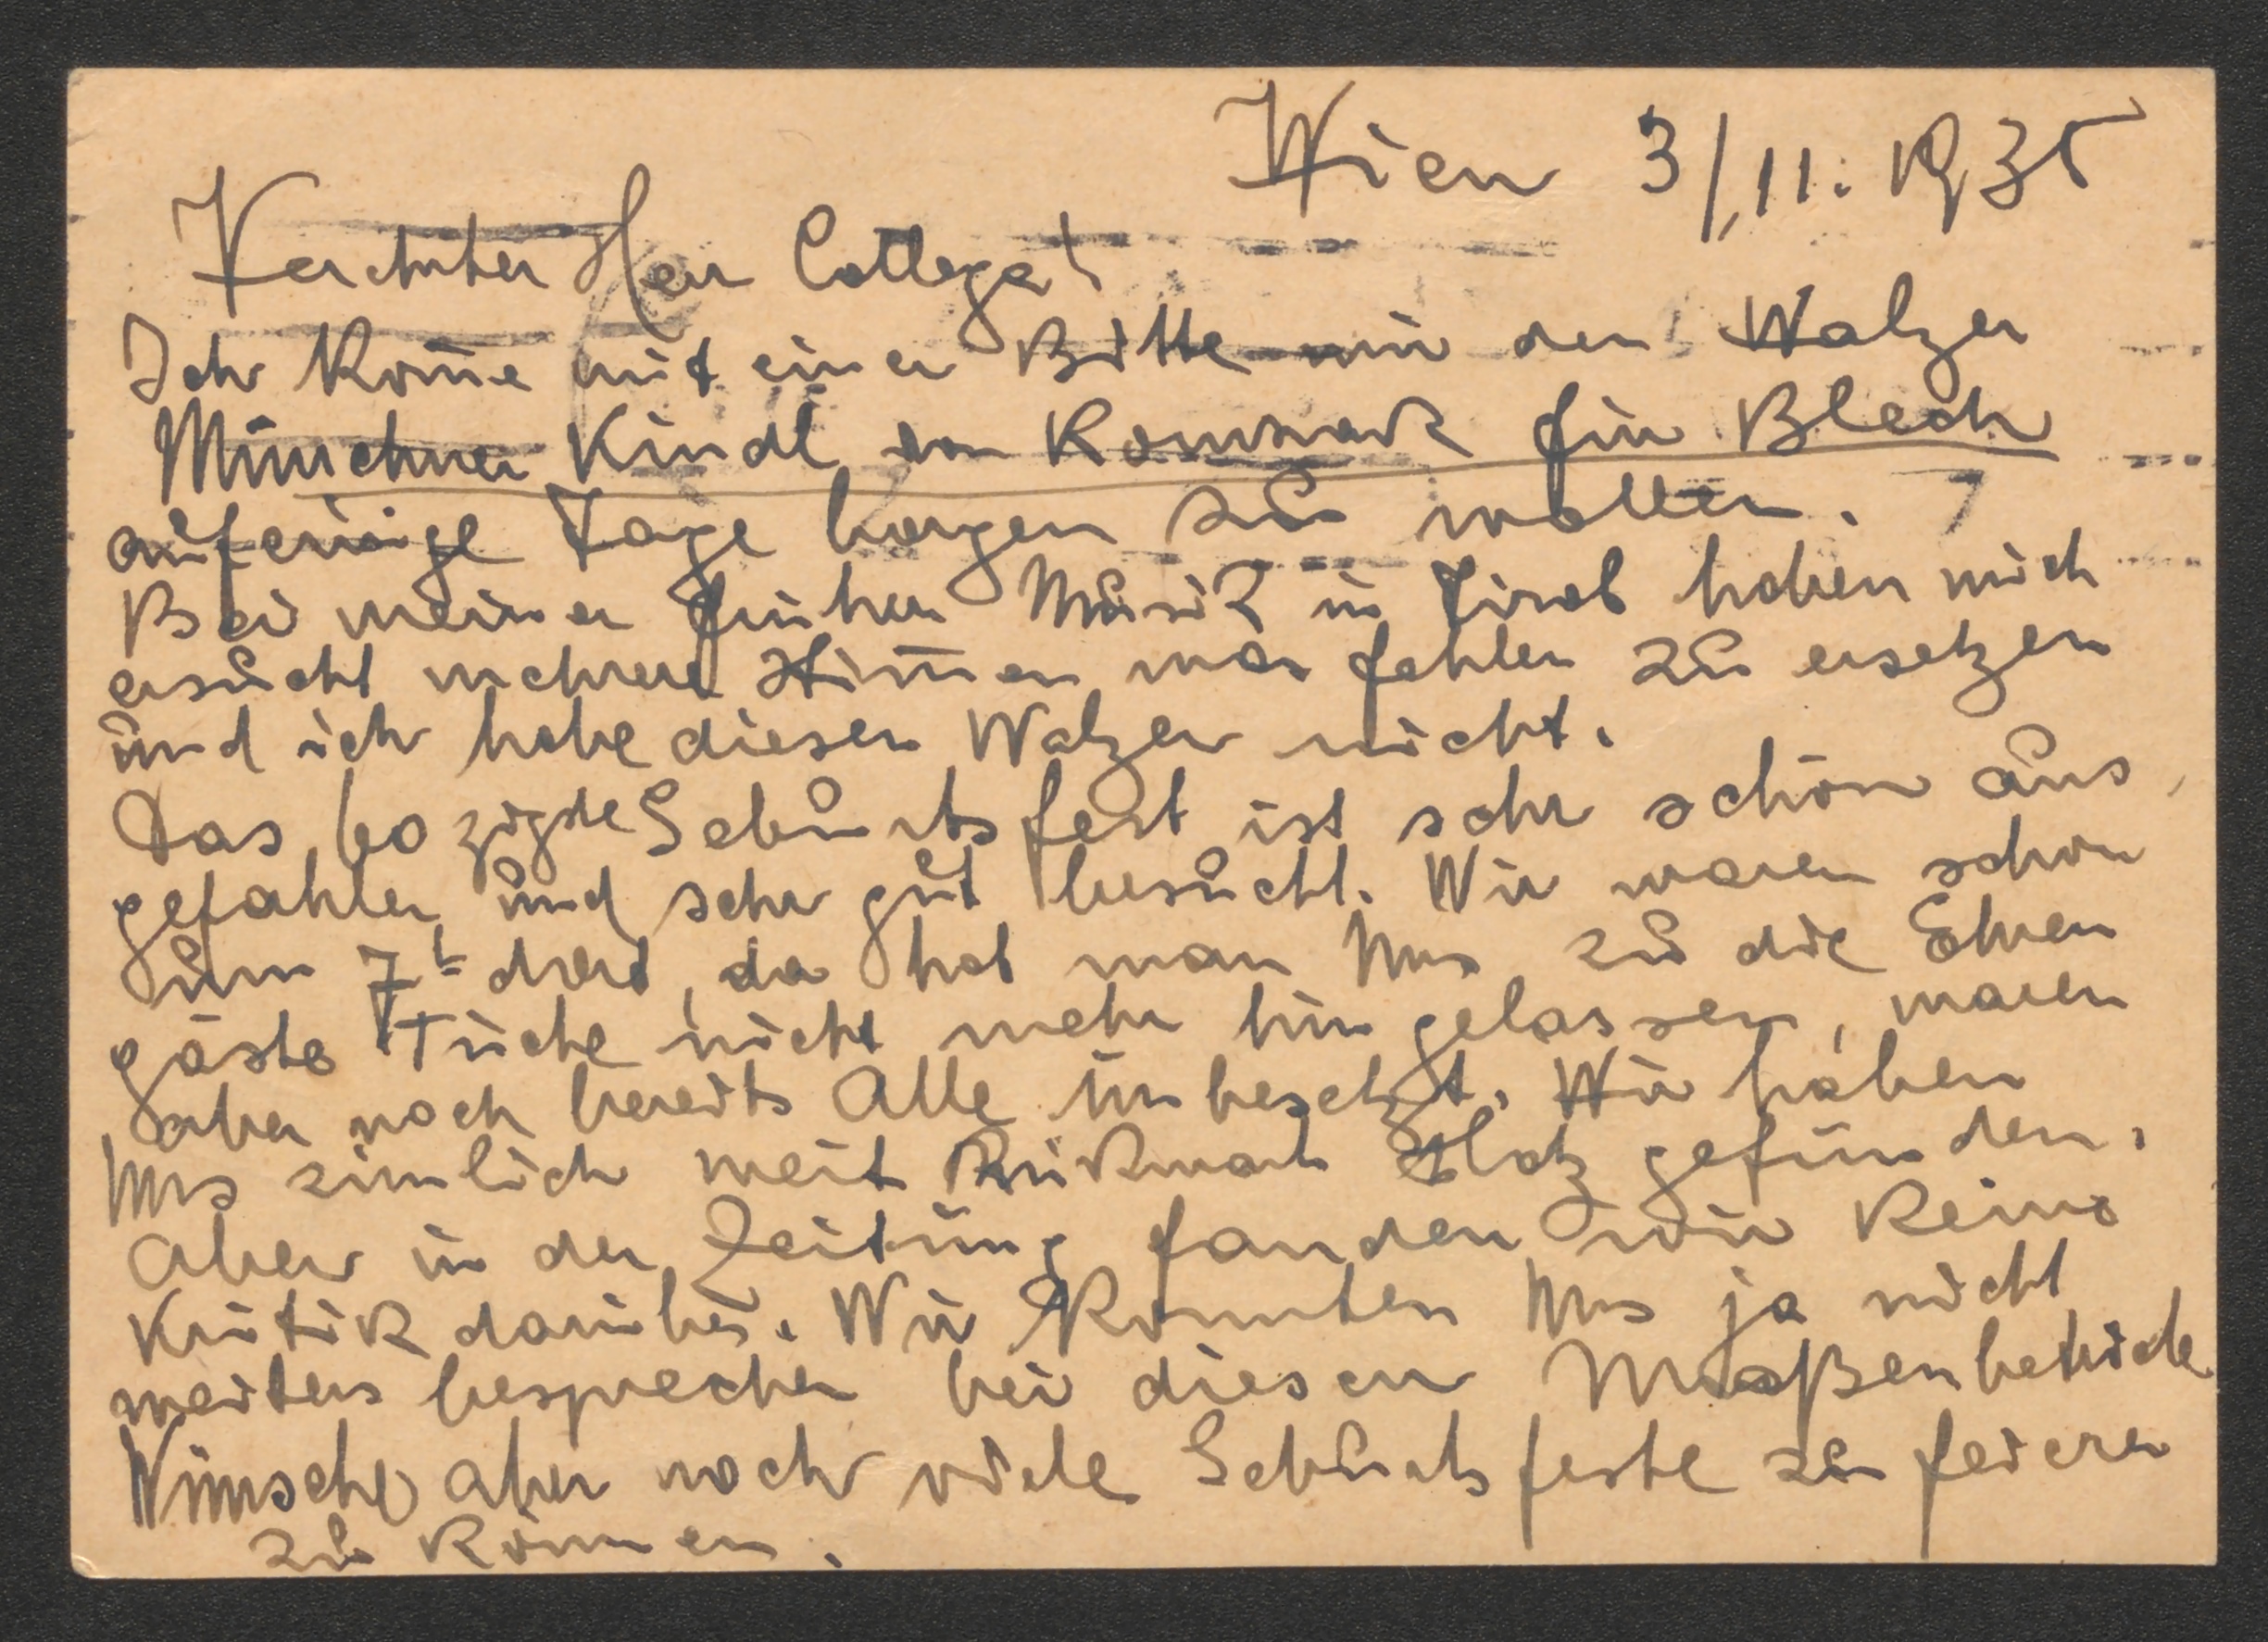 Wien 3/11. 1935
Verehrter Herr Collega!
Ich kom̄e mit einer Bitte mir den Walzer
Münchner Kindl von Komzack für Blech
auf einige Tage borgen zu wollen.
Bei meiner frühern Musik in Tirol haben mich
ersucht mehrere Stim̄en was fehlen zu ersetzen
und ich habe diesen Walzer nicht.
Das 60 zigste Geburtsfest ist sehr schön aus
gefahlen und sehr gut besucht. Wir waren schon
um 7h dort, da hat man Uns zu die Ehren
gäste Tische nicht mehr hin gelassen, waren
aber noch bereits Alle unbesetzt. Wir haben
Uns zimlich weit Rükwärts Platz gefunden.
Aber in der Zeitung fanden wir keine
Kritik darüber. Wir konnten Uns ja nicht
weiters besprechen bei diesen Maßenbetriebe
Wünsche aber noch viele Geburtsfeste zu feiern
zu können.